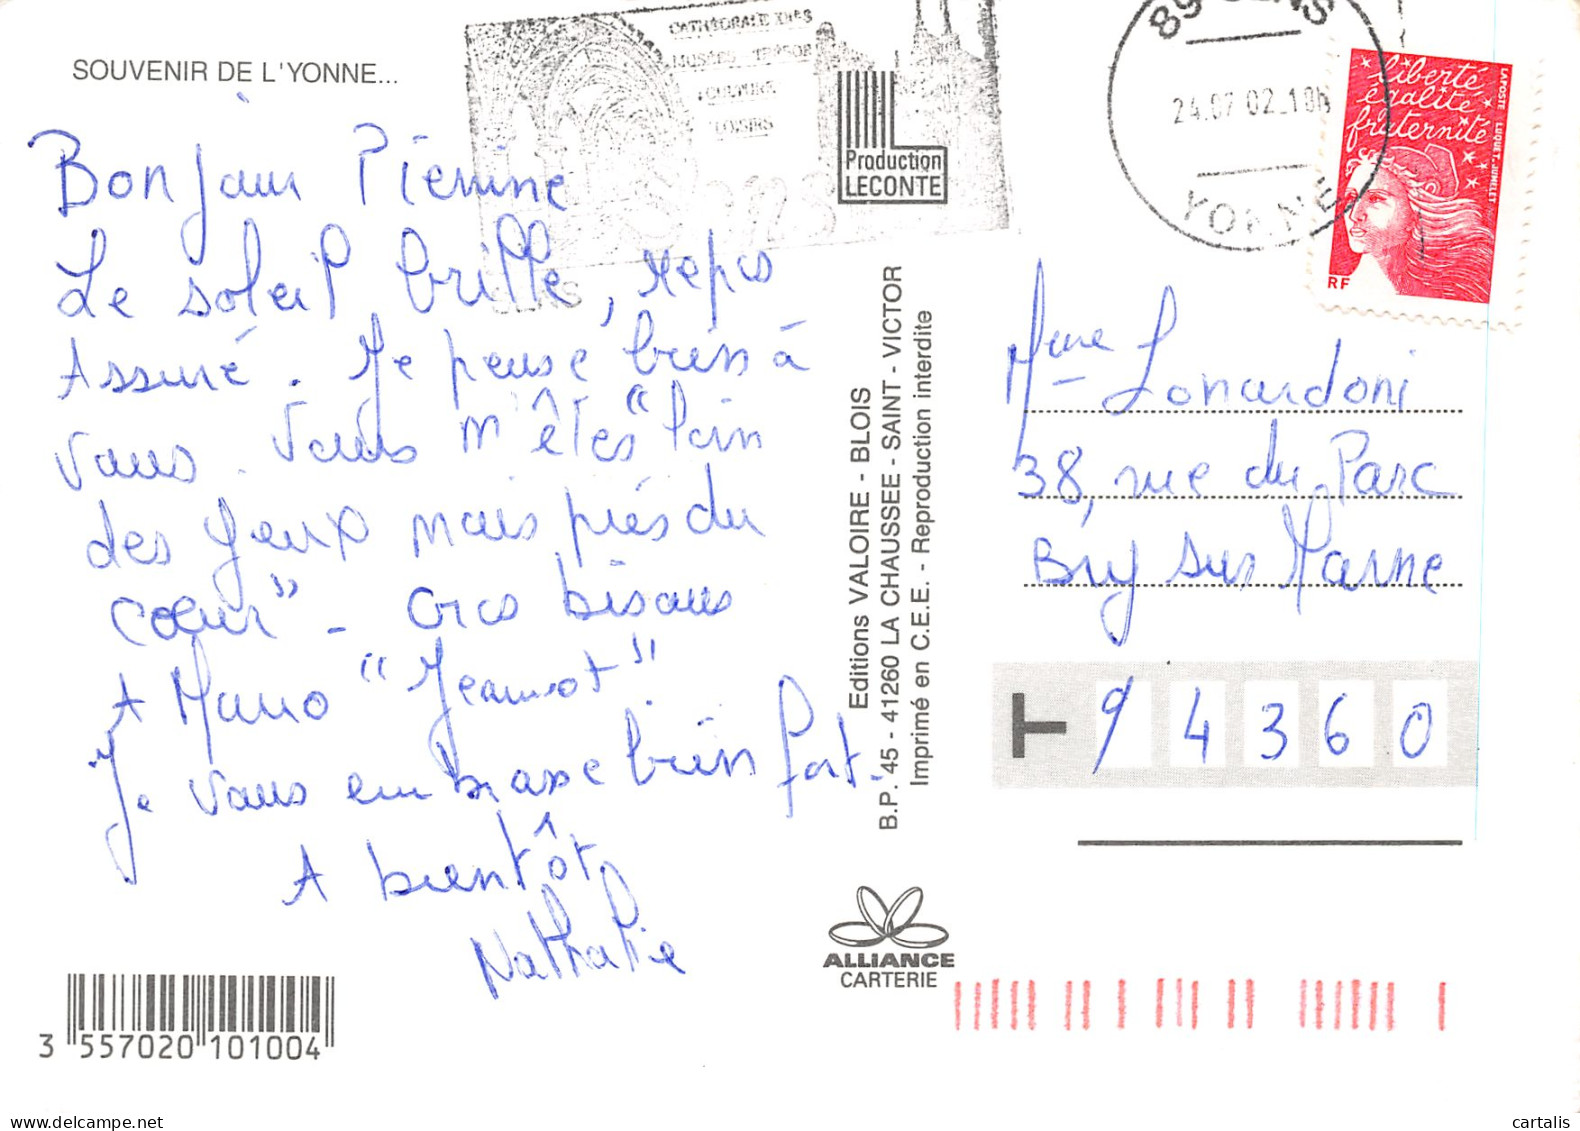 SOUVENIR DE L'YONNE...
Bonjour Pierrine
Le soleil brille, repos
Assuré. Je pense bien à
vous. Vous m'êtes "loin
des yeux mais près du
cœur" - Gros bisous
A Mario "Jeannot"
Je vous embrasse bien fort.
A bientôt,
Nathalie
3 557020 101004
CATHÉDRALE XIIes
MUSÉES TRÉSOR
CULTURE
LOISIRS
SENS
Production
LECONTE
Editions VALOIRE - BLOIS
B.P. 45 - 41260 LA CHAUSSEE - SAINT - VICTOR
Imprimé en C.E.E. - Reproduction interdite
ALLIANCE
CARTERIE
89 SENS
24.07 02_18H
YONNE
liberté
égalité
fraternité
LAPOSTE LUQUET-JUMELET
RF
Mme Lonardoni
38, rue du Parc
Bry sur Marne
94360
cartalis